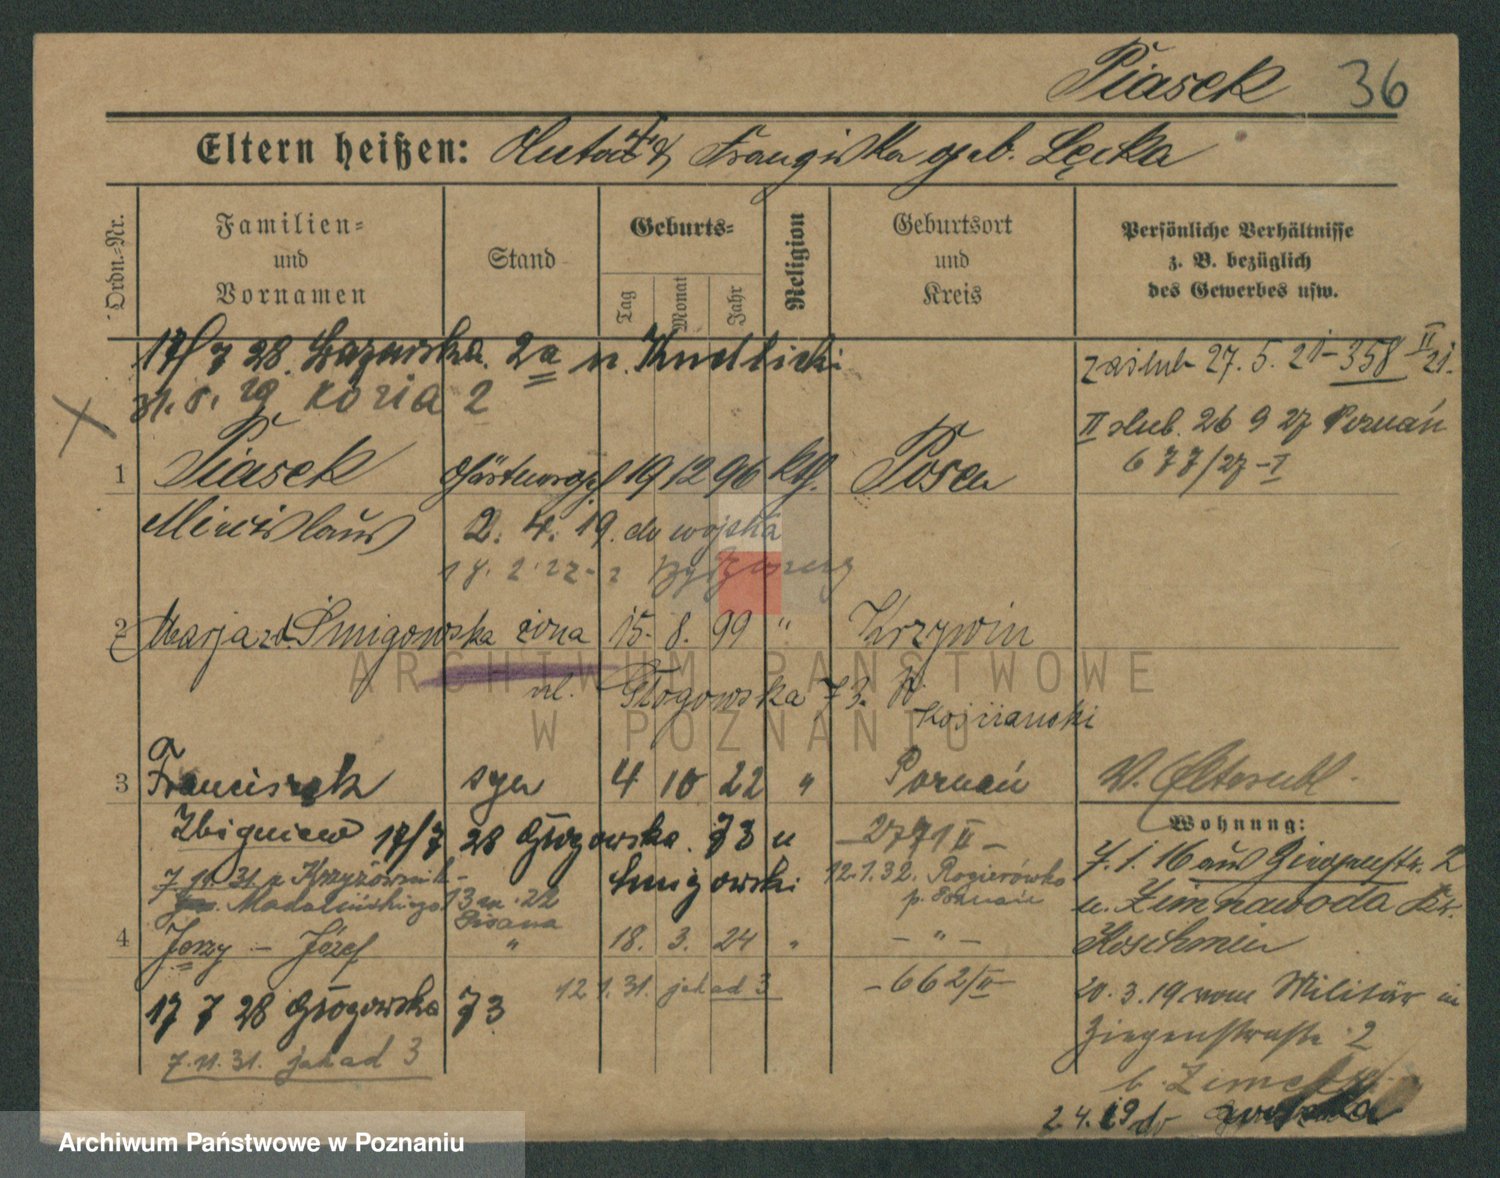 Piasek 36
Eltern heißen: & Franziska geb. Łęcka
Ordn.-Nr.
Familien- und Vornamen
Stand
Geburts-
Tag
Monat
Jahr
Religion
Geburtsort und Kreis
Persönliche Verhältnisse z. B. bezüglich des Gewerbes usw.
17/7 28. 2a u.
31. 5. 29 Kozia 2
zaślub 27. 5. 21 - 358 II 21.
II ślub. 26 9 27 Poznań
677/27 - I
1 Piasek 19 12 96 kth. Posen
Miecislaus 2. 4. 19. do wojska
18. 2. 22 - z
2 Marja zd. Śmigowska żona 15. 8. 99 " Krzywin
ul. Głogowska 73.
Kościański
3 Franciszek syn 4 10 22 " Poznań
Zbigniew 17/7 28 Głogowska 73 u
Śmigowski
— 2771 II —
12. 1. 32. Rogierówko
p. Poznań
7. 11. 31 z Krzyżownik-
13 m. 22
Pisana
4 Jerzy — Józef " 18. 3. 24 " — " —
12 1. 31. jak ad 3
— 662/II —
17 7 28 Głogowska 73
7. 11. 31. jak ad 3
Wohnung:
7. 1. 16 aus 2
u. Zimnawoda Kr.
Koschmin
20. 3. 19 vom Militär in
Ziegenstraße 2
b.
2. 4. 19 do
ARCHIWUM PAŃSTWOWE
W POZNANIU
Archiwum Państwowe w Poznaniu